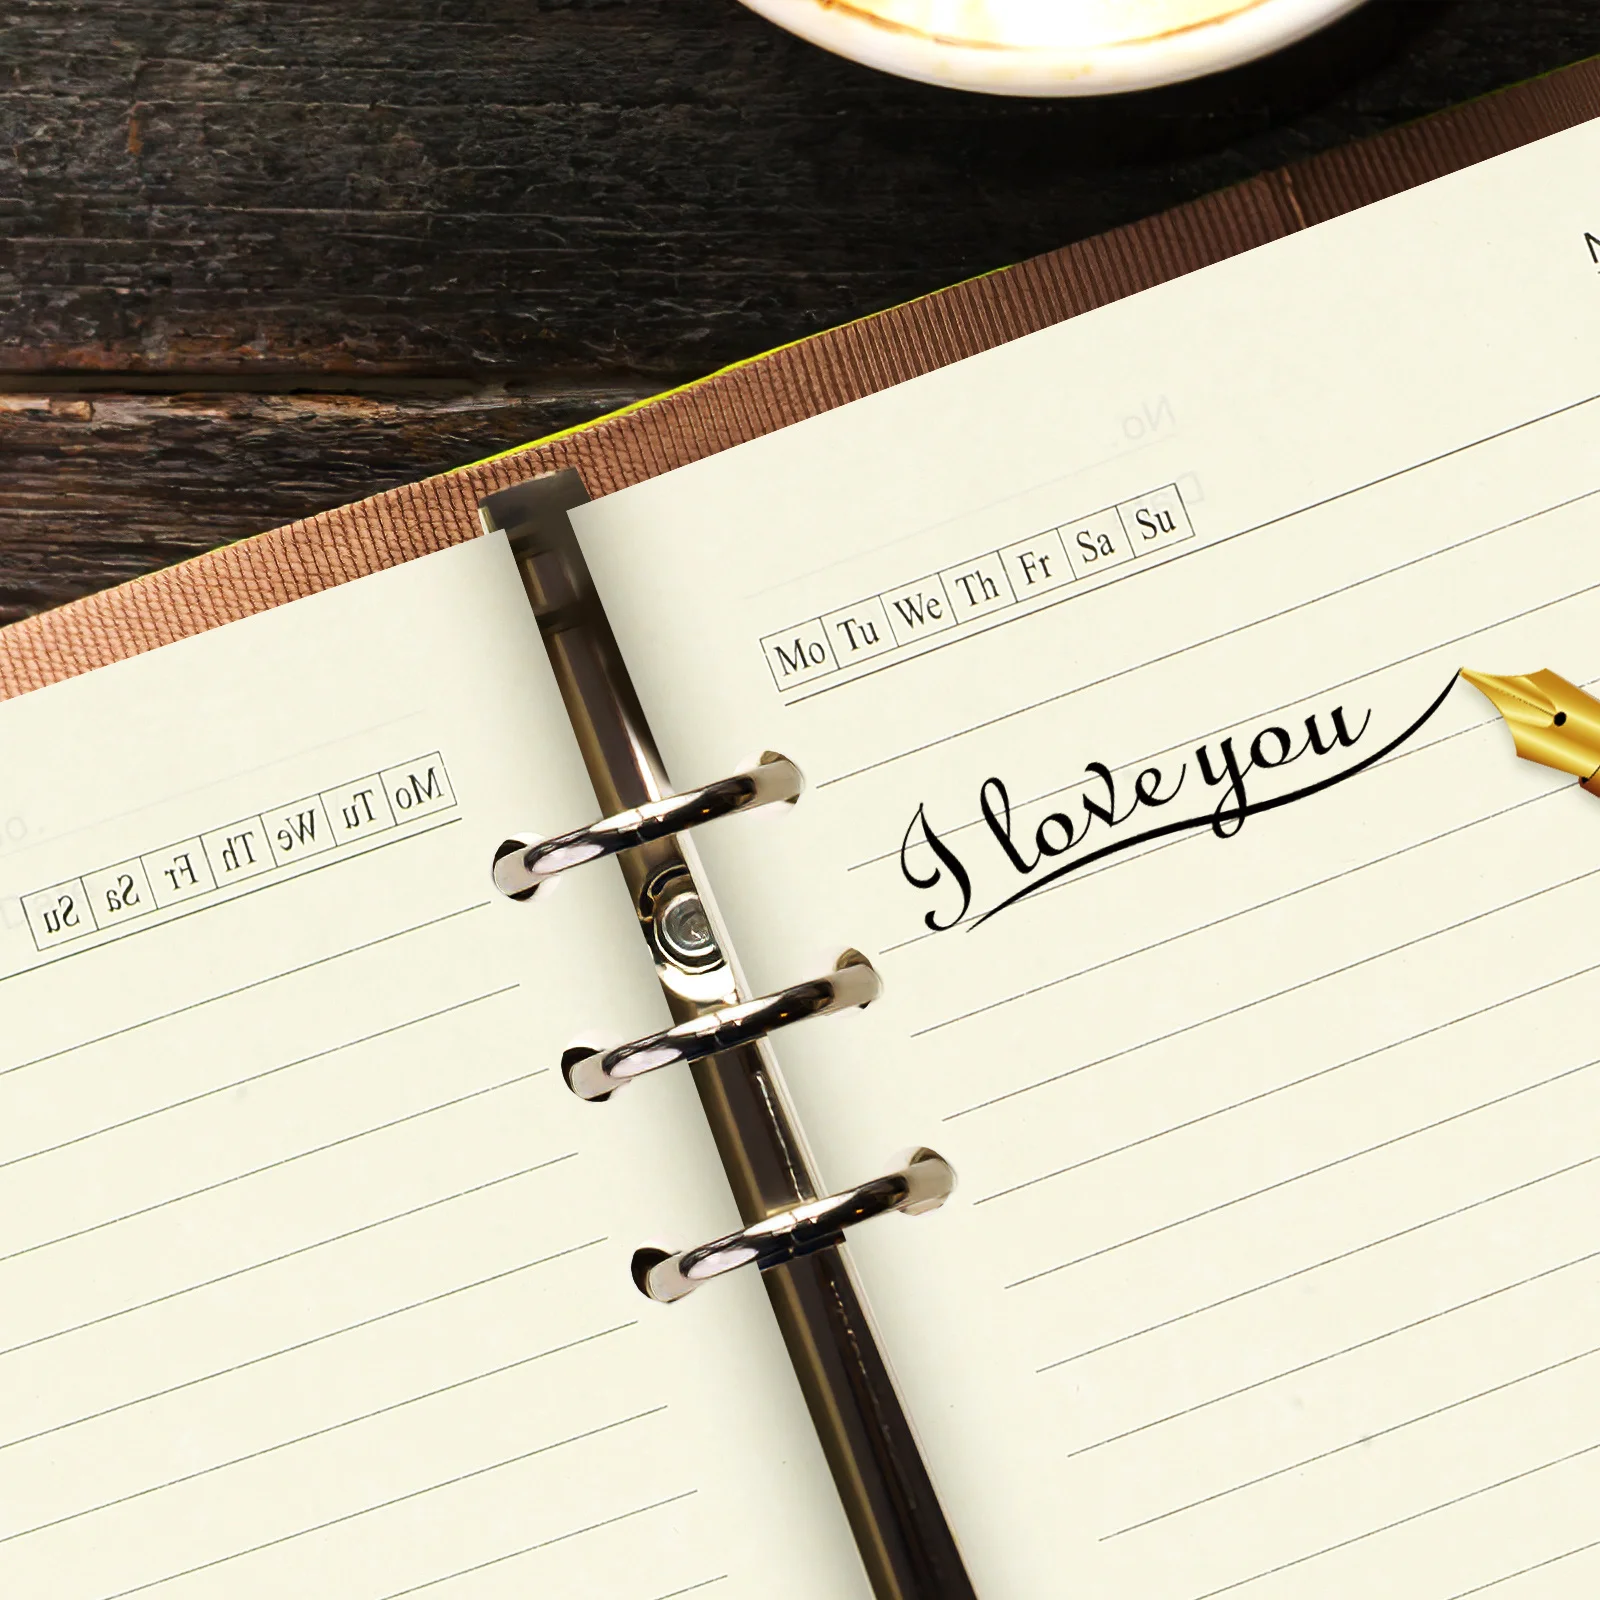 Mo Tu We Th Fr Sa Su
No.
Mo Tu We Th Fr Sa Su
I love you